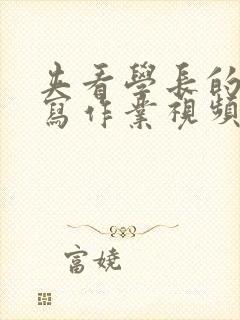 夹看學長的
寫作業視頻
富嬈